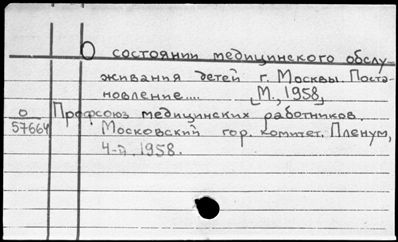 О состоянии медицинского обслу-
живания детей г. Москвы. Поста-
новление.... [М., 1958]
О Профсоюз медицинских работников.
57664 Московский гор. комитет. Пленум,
4-й. 1958.